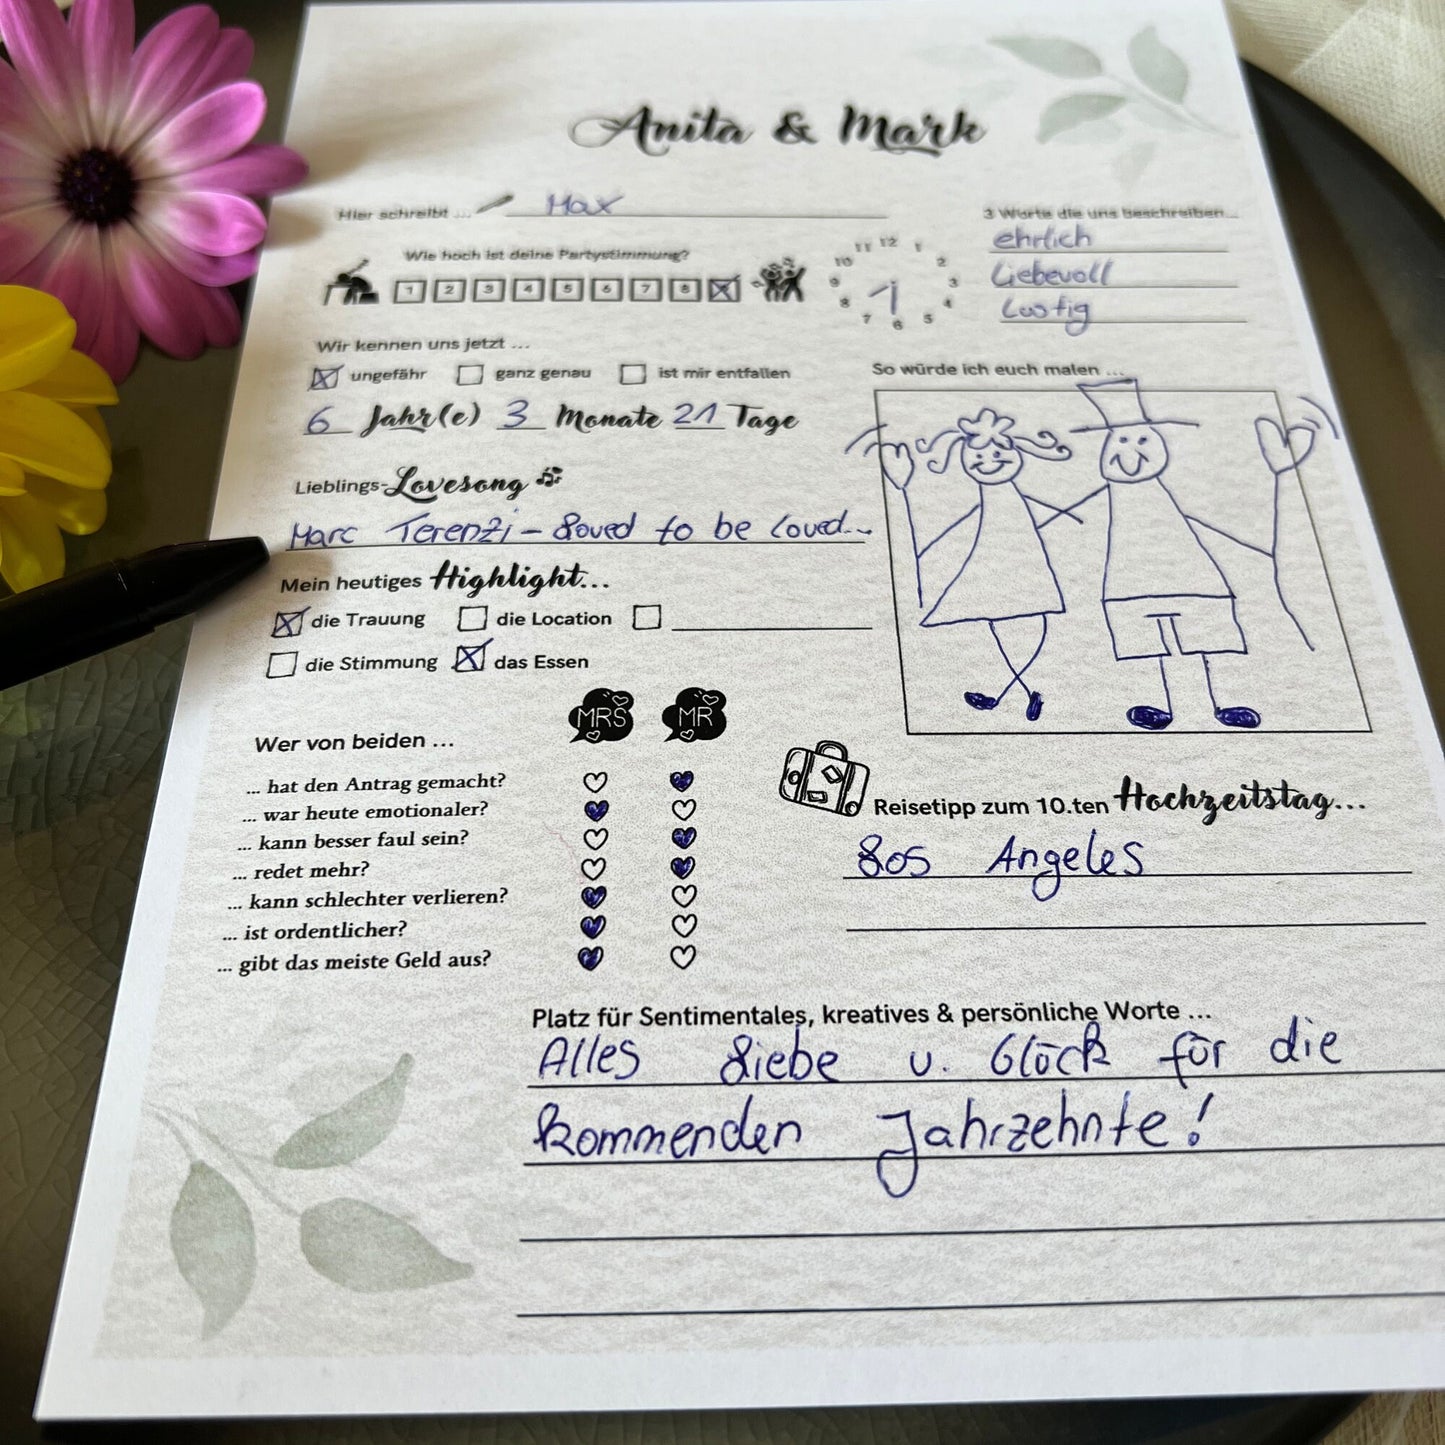 Anita & Mark
Hier schreibt ... Max
3 Worte die uns beschreiben...
ehrlich
Liebevoll
Lustig
Wie hoch ist deine Partystimmung?
1 2 3 4 5 6 7 8
12 1 2 3 4 5 6 7 8 9 10 11
Wir kennen uns jetzt ...
ungefähr ganz genau ist mir entfallen
6 Jahr(e) 3 Monate 21 Tage
So würde ich euch malen ...
Lieblings-Lovesong
Marc Terenzi - Loved to be loved...
Mein heutiges Highlight...
die Trauung die Location
die Stimmung das Essen
MRS MR
Wer von beiden ...
... hat den Antrag gemacht?
... war heute emotionaler?
... kann besser faul sein?
... redet mehr?
... kann schlechter verlieren?
... ist ordentlicher?
... gibt das meiste Geld aus?
Reisetipp zum 10.ten Hochzeitstag...
Los Angeles
Platz für Sentimentales, kreatives & persönliche Worte ...
Alles Liebe u. Glück für die
kommenden Jahrzehnte!